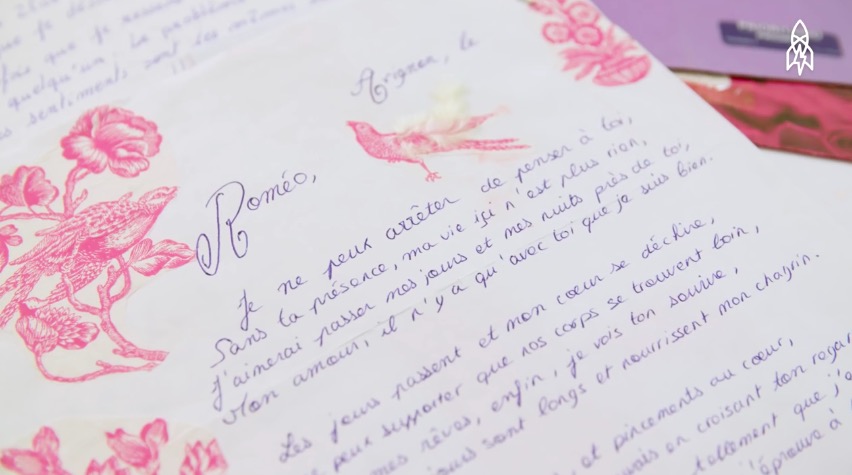 fois que je
quelqu'un. Le problème
sentiments sont les mêmes
Avignon, le
Roméo,
Je ne peux arrêter de penser à toi,
Sans ta présence, ma vie ici n'est plus rien,
J'aimerai passer mes jours et mes nuits près de toi,
Mon amour, il n'y a qu'avec toi que je suis bien.
Les jours passent et mon cœur se déchire,
peux supporter que nos corps se trouvent loin,
mes rêves, enfin, je vois ton sourire,
jours sont longs et nourrissent mon chagrin.
et pincements au cœur,
en croisant ton regar
tellement que j'